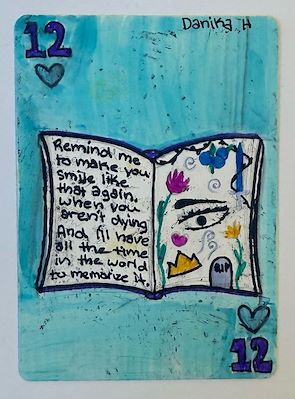 12
Danika H
Remind me
to make you
smile like
that again,
when you
aren't dying
And I'll have
all the time
in the world
to memorize it.
RIP
12